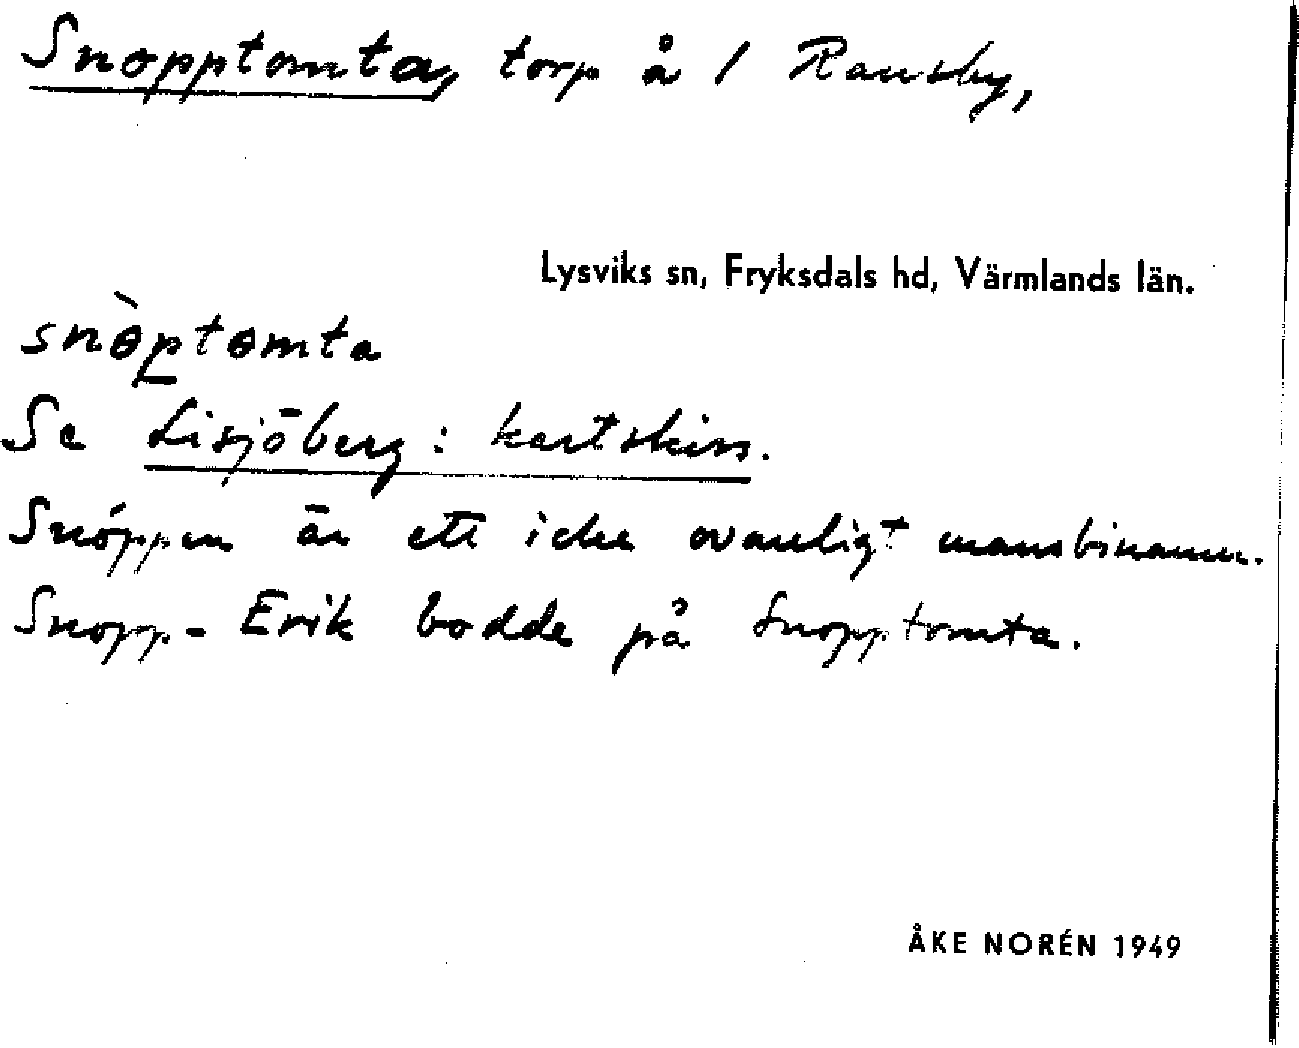 Snopptomta, torp å 1 Ransby,
Lysviks sn, Fryksdals hd, Värmlands län.
snòptomta
Se Lisjöberg: kartskiss.
Snóppen är ett icke ovanligt mansbinamn.
Snopp-Erik bodde på Snopptomta.
ÅKE NORÉN 1949